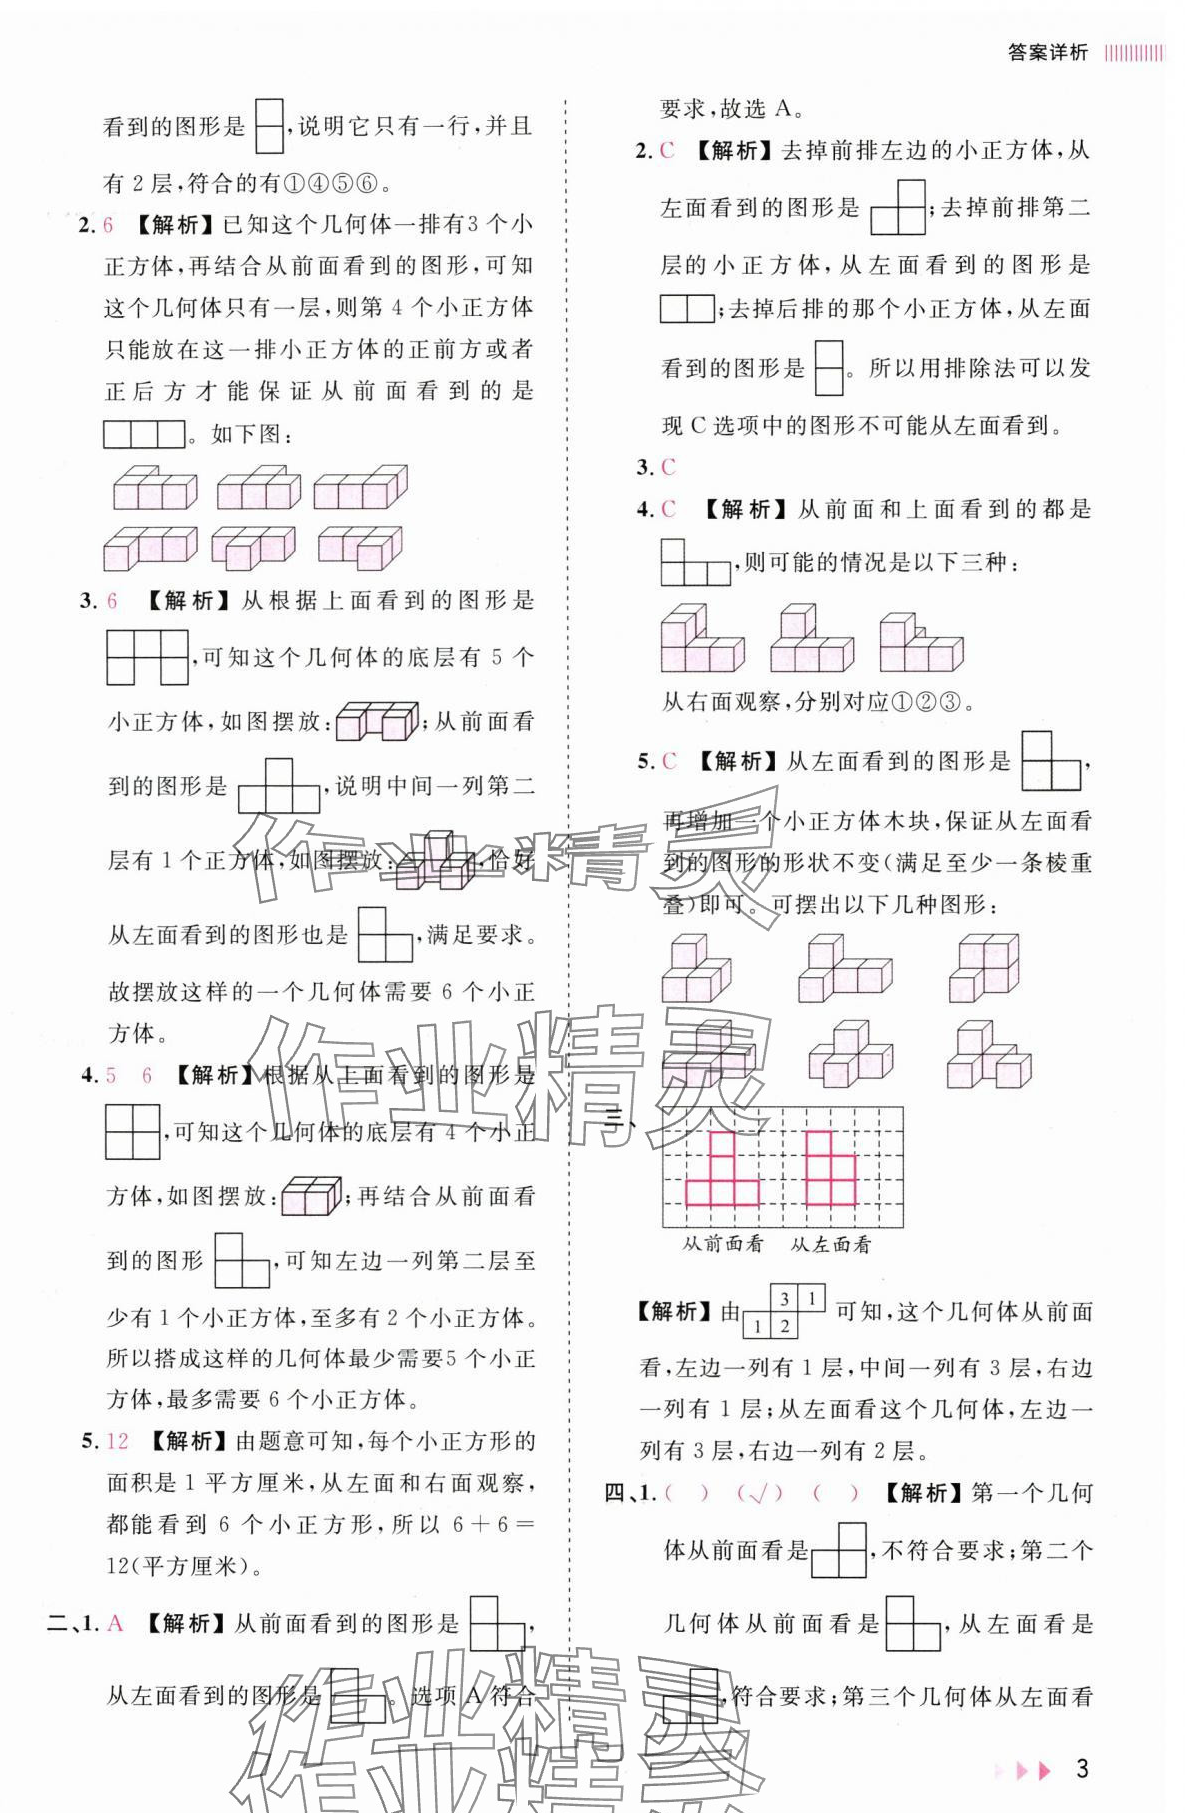 答案详析
看到的图形是,说明它只有一行,并且
有 2 层,符合的有①④⑤⑥。
2. 6 【解析】已知这个几何体一排有3 个小
正方体,再结合从前面看到的图形,可知
这个几何体只有一层,则第 4 个小正方体
只能放在这一排小正方体的正前方或者
正后方才能保证从前面看到的是
。如下图:
3. 6 【解析】从根据上面看到的图形是
,可知这个几何体的底层有 5 个
小正方体,如图摆放:;从前面看
到的图形是,说明中间一列第二
层有 1 个正方体,如图摆放:,恰好
从左面看到的图形也是,满足要求。
故摆放这样的一个几何体需要 6 个小正
方体。
4. 5 6 【解析】根据从上面看到的图形是
,可知这个几何体的底层有 4 个小正
方体,如图摆放:;再结合从前面看
到的图形,可知左边一列第二层至
少有 1 个小正方体,至多有 2 个小正方体。
所以搭成这样的几何体最少需要5 个小正
方体,最多需要 6 个小正方体。
5. 12 【解析】由题意可知,每个小正方形的
面积是 1 平方厘米,从左面和右面观察,
都能看到 6 个小正方形,所以 6+6=
12(平方厘米)。
二、1. A 【解析】从前面看到的图形是,
从左面看到的图形是。选项 A 符合
要求,故选 A。
2. C 【解析】去掉前排左边的小正方体,从
左面看到的图形是;去掉前排第二
层的小正方体,从左面看到的图形是
;去掉后排的那个小正方体,从左面
看到的图形是。所以用排除法可以发
现 C 选项中的图形不可能从左面看到。
3. C
4. C 【解析】从前面和上面看到的都是
,则可能的情况是以下三种:
从右面观察,分别对应①②③。
5. C 【解析】从左面看到的图形是,
再增加一个小正方体木块,保证从左面看
到的图形的形状不变(满足至少一条棱重
叠)即可。可摆出以下几种图形:
三、
从前面看 从左面看
【解析】由 3 1 1 2 可知,这个几何体从前面
看,左边一列有 1 层,中间一列有 3 层,右边
一列有 1 层;从左面看这个几何体,左边一
列有 3 层,右边一列有 2 层。
四、1. ( ) (√) ( ) 【解析】第一个几何
体从前面看是,不符合要求;第二个
几何体从前面看是,从左面看是
,符合要求;第三个几何体从左面看
3
作业精灵
作业精灵
作业精灵
作业精灵